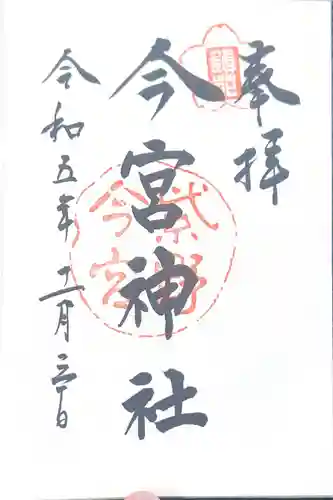 奉拝
今宮神社
令和五年十一月三十日
紫野
今宮